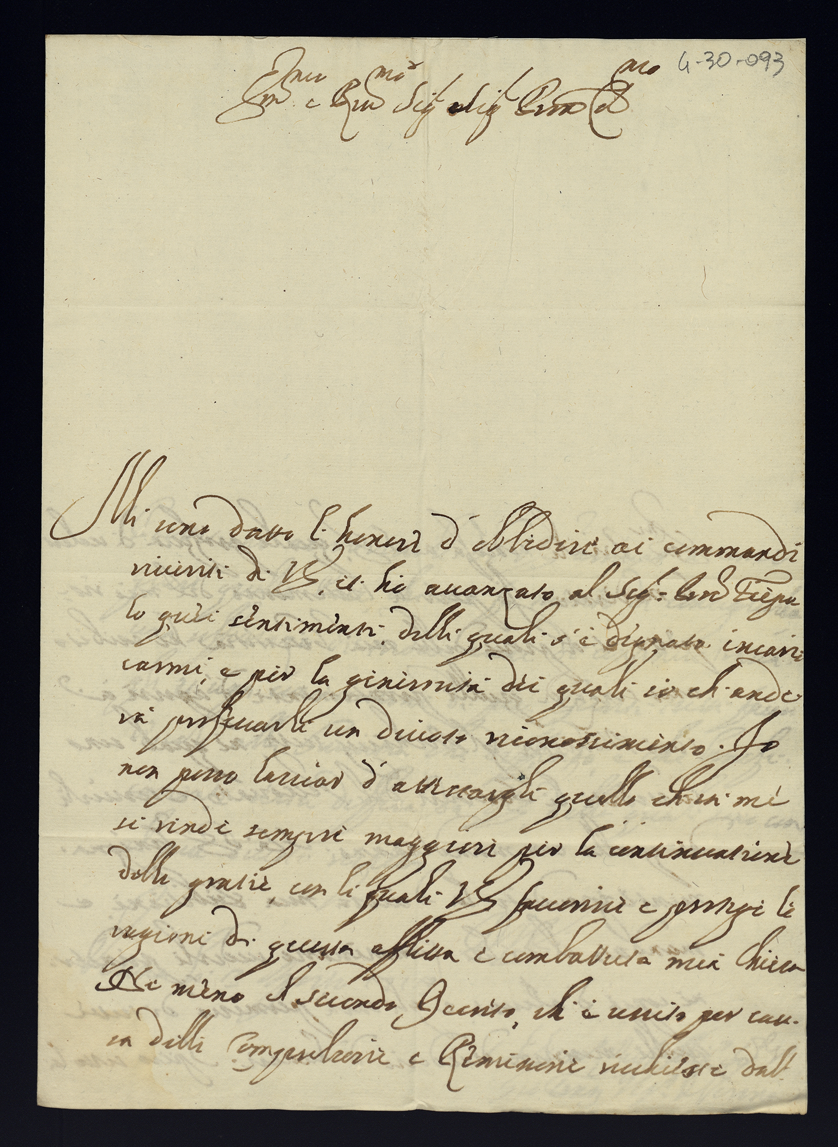 4-30-093
Em.mo e Rev.mo Sig.r Sig.r Pron Col.mo
Mi sono dato l'honore d'obbedire ai commandi
riveriti di VS, et ho avanzato al Sig.r Tiepo
lo quei sentimenti, delli quali s'è degnata incari
carmi, e per la generosità dei quali io ch'ande
rà un divoto riconoscimento. Io
non posso lasciar d' quello ch'in me
si rende sempre maggiore per la continuatione
delle gratie, con le quali VS favorisce e protege le
ragioni di questa afflitta e combattuta mia Chiesa
Ne meno il secondo Decreto, ch'è uscito per cau-
sa delle Compulsorie e Remissorie richieste dall'